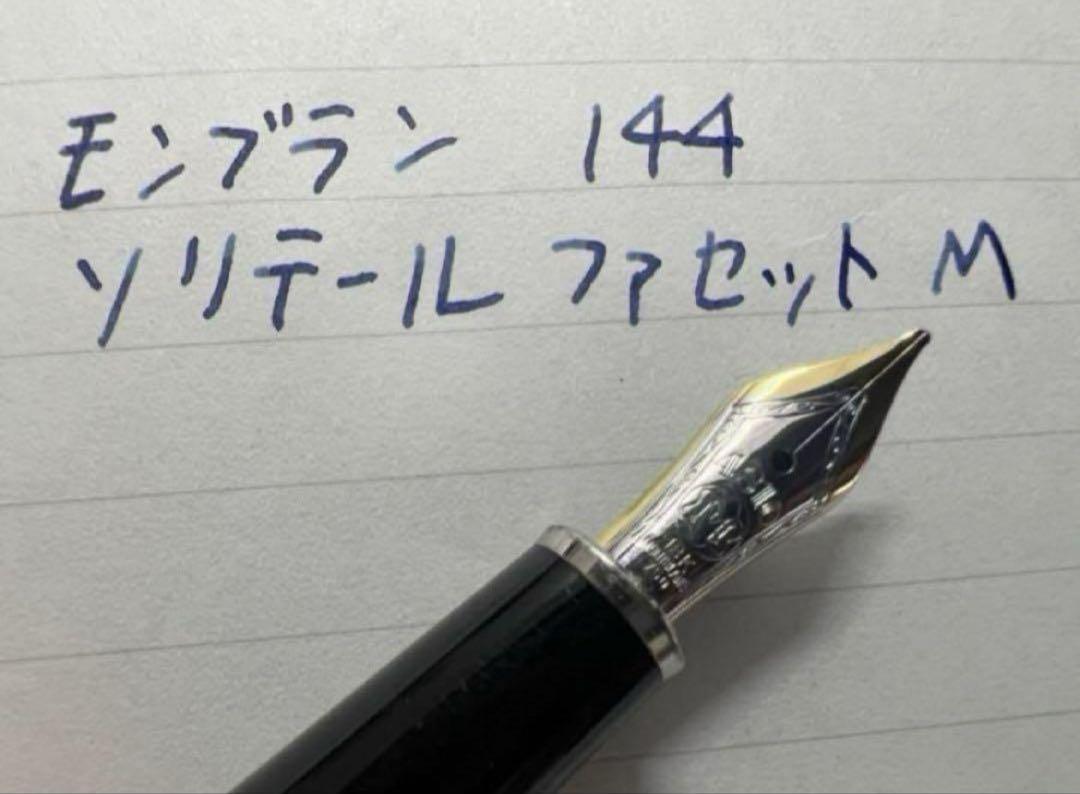 モンブラン 144
ソリテール ファセット M
18K